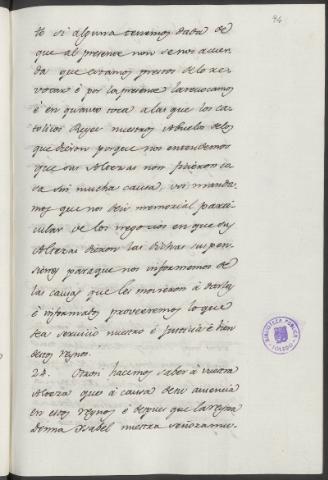 94
to si alguna tenemos dada de
que al presente non se nos acuer-
da que estamos prestos de lo re-
vocar è por la presente la revocamos
è en quanto toca a las que los ca-
tolicos Reyes nuestros Abuelos de los
que dieron porque nos entendemos
que sus Altezas non ficieron co-
sa sin mucha causa, vos manda-
mos que nos deis memorial parti-
cular de los negocios en que sus
Altezas dieron las dichas suspen-
siones para que nos informemos de
las causas que les movieron à darlas
è informados proveeremos lo que
sea servicio nuestro è justicia è bien
destos reynos.
24. Otrosi hacemos saber à vuestra
Alteza que à causa de su ausencia
en estos reynos è despues que la reyna
Donna Isabel nuestra señora mu-
BIBLIOTECA PUBLICA
TOLEDO